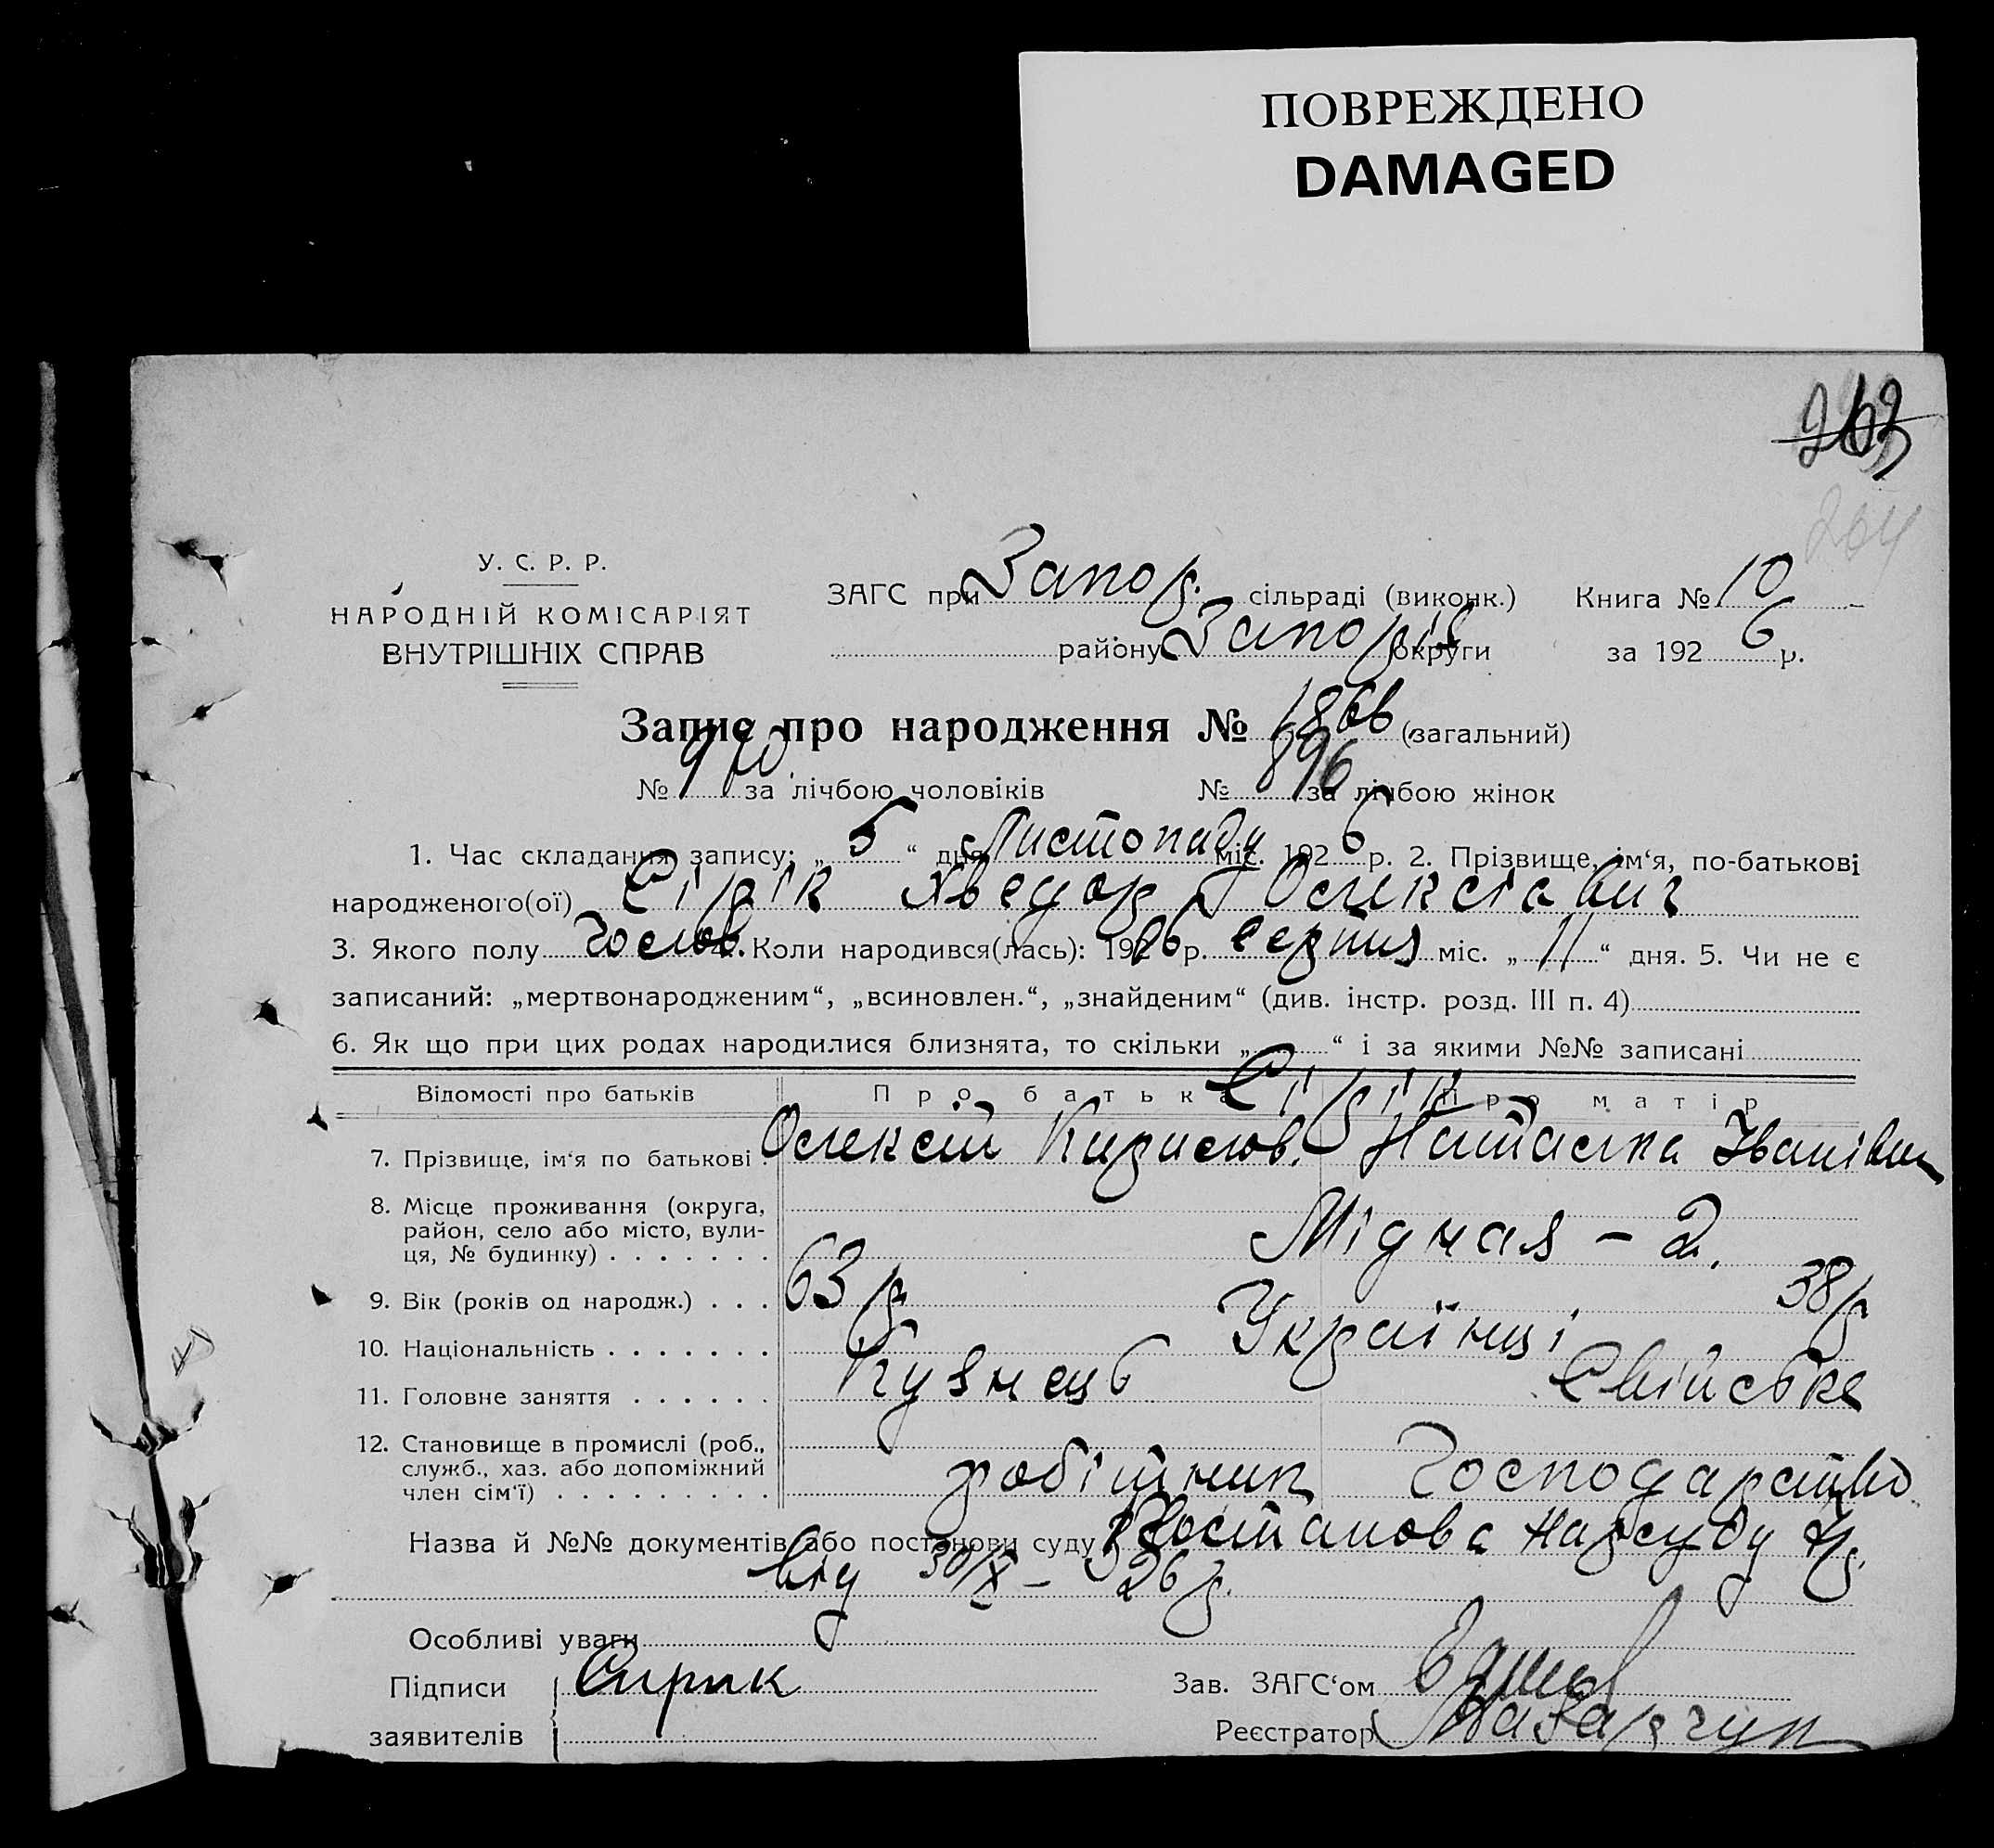 ПОВРЕЖДЕНО
DAMAGED
264
У. С. Р. Р.
НАРОДНІЙ КОМІСАРІЯТ
ВНУТРІШНІХ СПРАВ
ЗАГС при Запор. сільраді (виконк.) Книга № 10
району Запоріз округи за 1926 р.
Запис про народження № 1866 (загальний)
№ 970 за лічбою чоловіків № 896 за лічбою жінок
1. Час складання запису: „5“ дня Листопаду міс. 1926 р. 2. Прізвище, ім‘я, по-батькові
народженого(ої) Сірік Хведор Олексієвич
3. Якого полу чолов. 4. Коли народився(лась): 1926 р. серпня міс. „11“ дня. 5. Чи не є
записаний: „мертвонародженим“, „всиновлен.“, „знайденим“ (див. інстр. розд. III п. 4)
6. Як що при цих родах народилися близнята, то скільки „ “ і за якими №№ записані
Відомості про батьків Про батька Про матір
Сірік
7. Прізвище, ім‘я по батькові Олексій Кирилов. Наталка Іванівна
8. Місце проживання (округа,
район, село або місто, вули-
ця, № будинку) Мідная - 2.
9. Вік (років од народж.) 63 р 38 р
10. Національність Українці
11. Головне заняття Кузнець Свійське
12. Становище в промислі (роб.,
служб., хаз. або допоміжний
член сім‘ї) робітник Господарство
Назва й №№ документів або постанови суду Постанова Нарсуду
від 30/X - 26 р.
Особливі уваги
Підписи Сирик Зав. ЗАГС‘ом
заявителів Реєстратор Назарчук